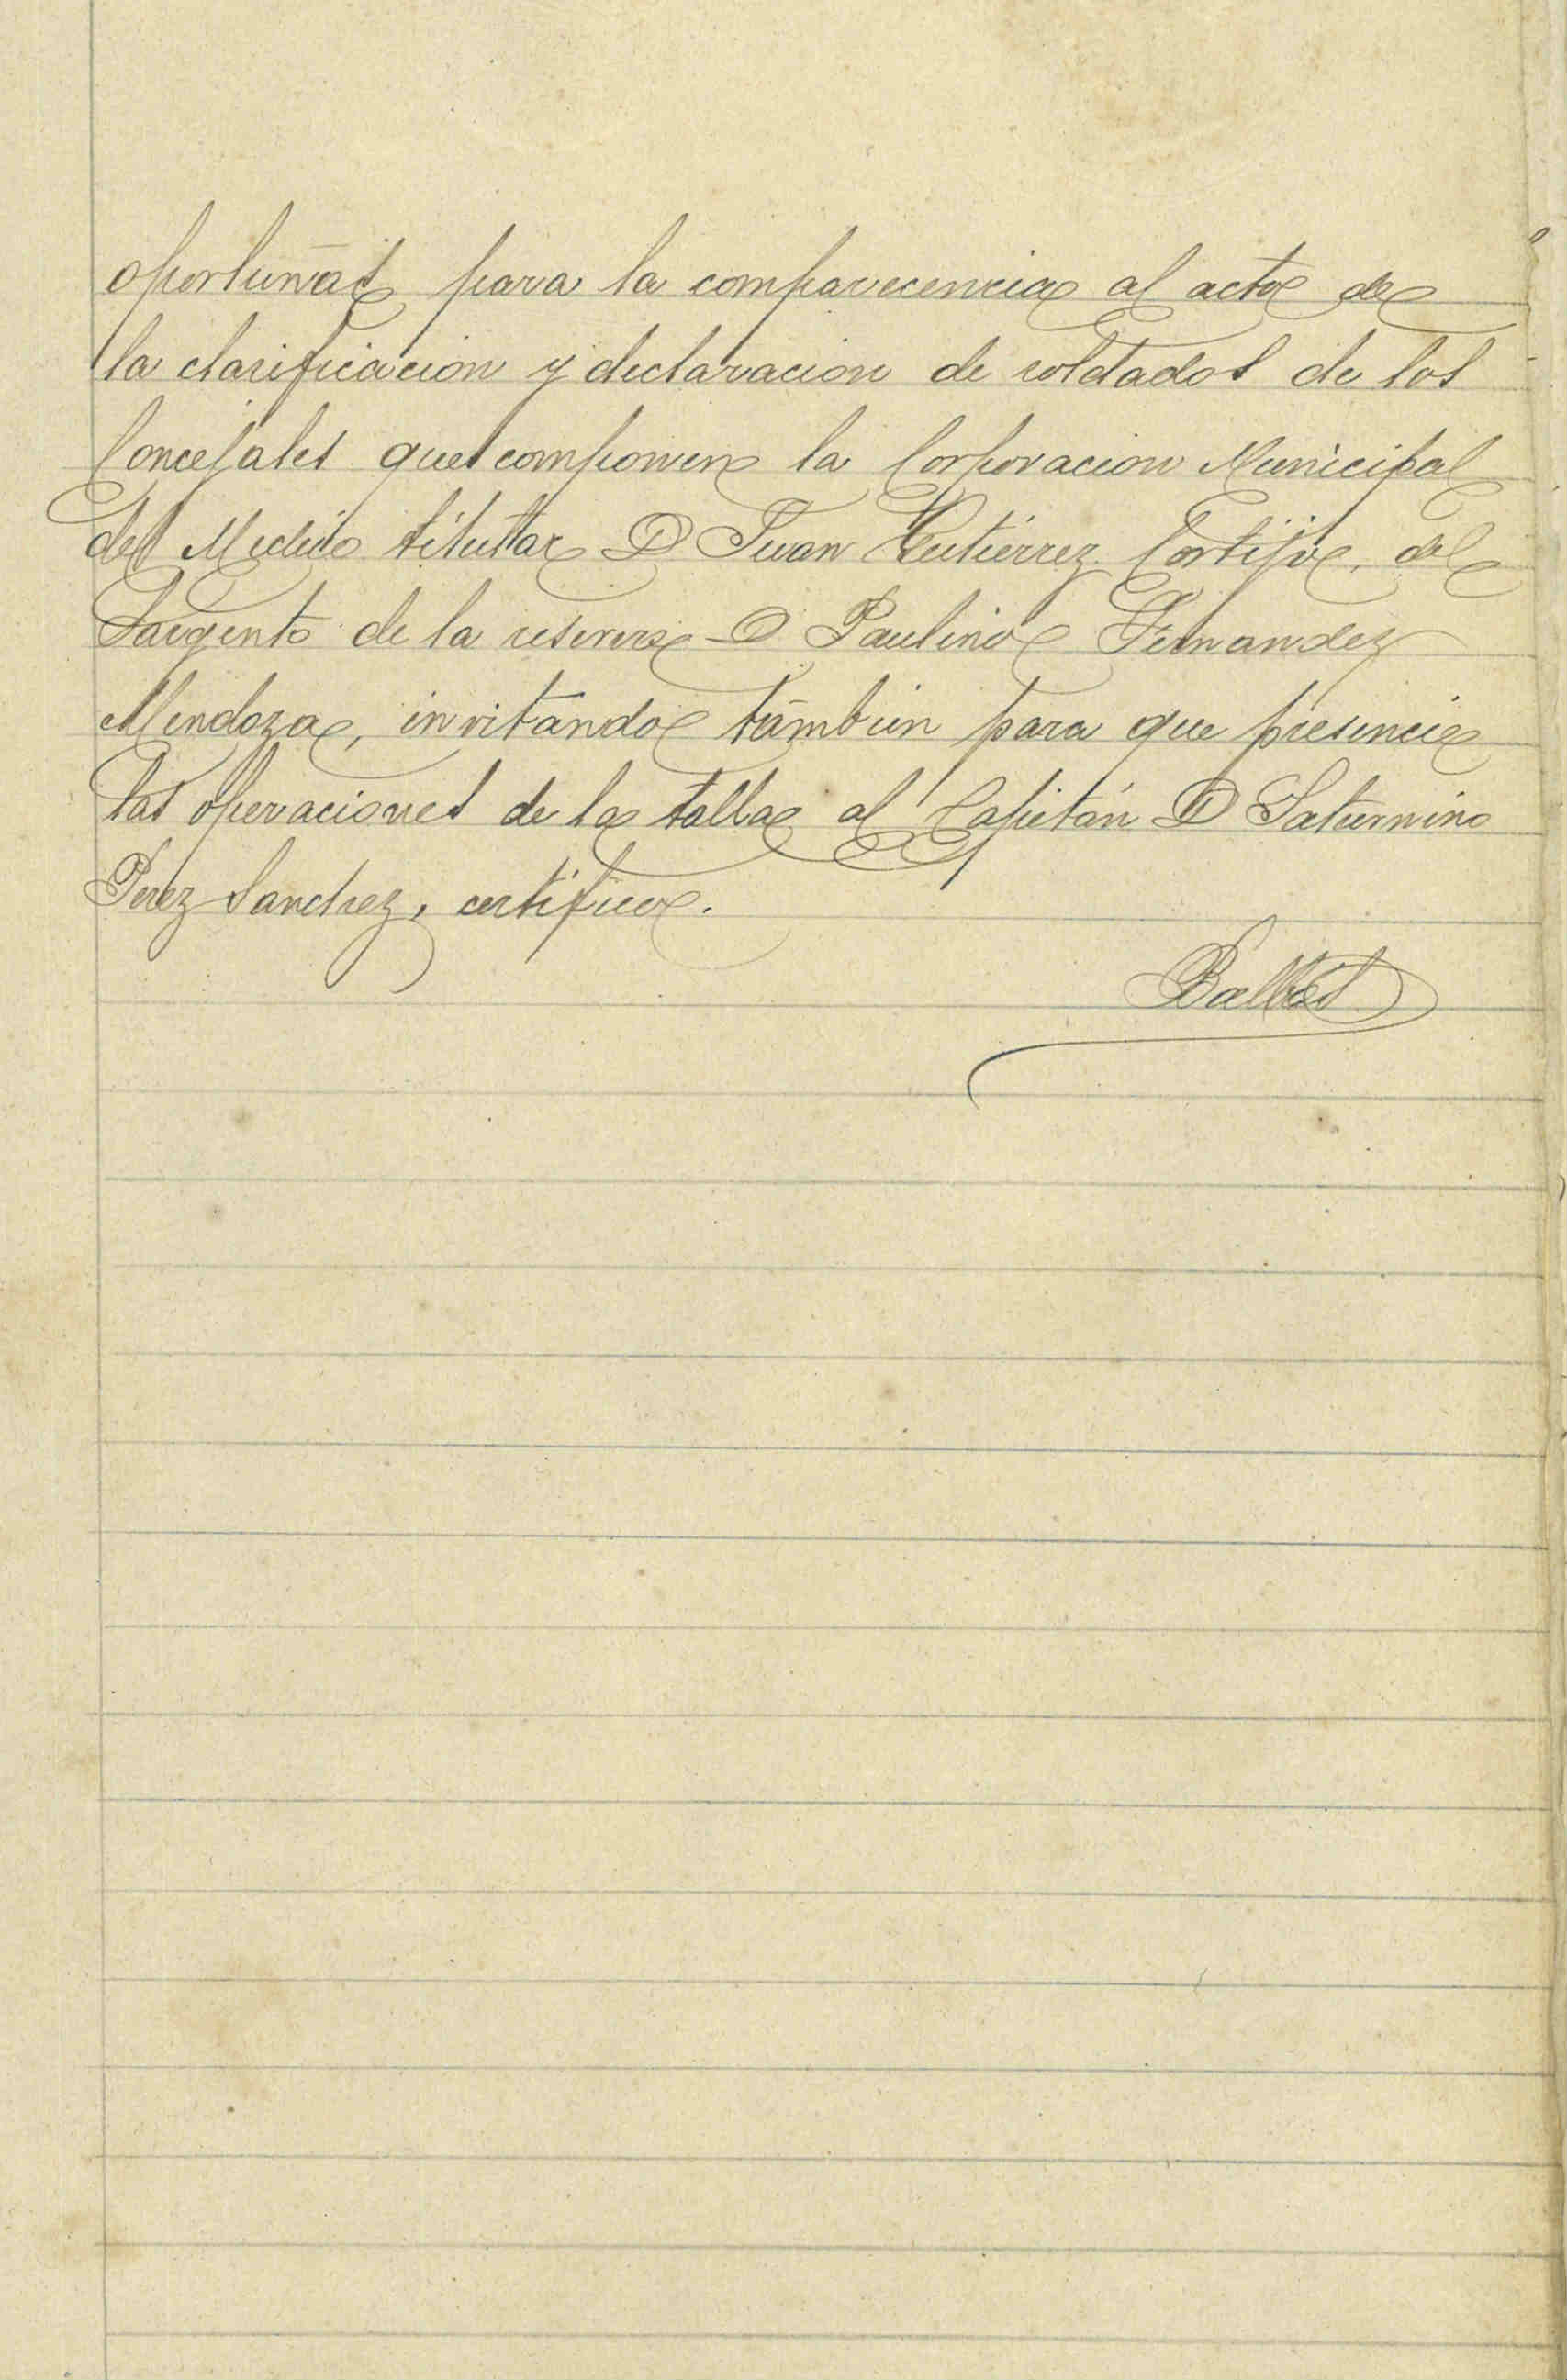 oportunas para la comparecencia al acto de
la clasificacion y declaracion de soldados de los
Concejales que componen la Corporacion Municipal
del Medico titular D Juan Gutiérrez Cortijo, del
Sargento de la reserva D Paulino Fernandez
Mendoza, invitando tambien para que presencie
las operaciones de la talla al Capitán D Saturnino
Perez Sanchez, certifico.